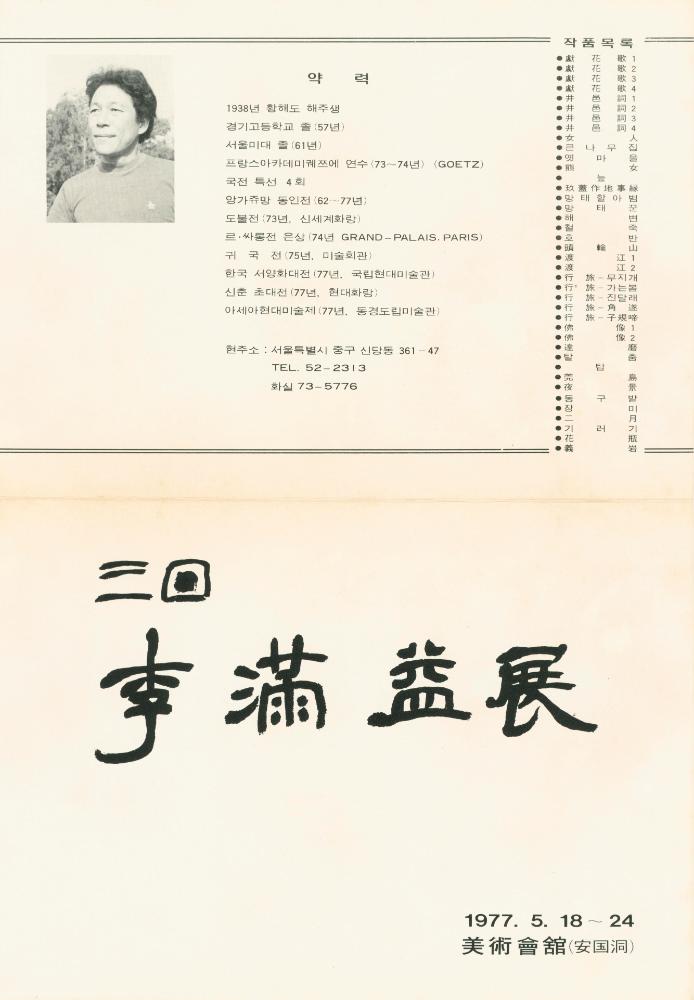 약 력
1938년 황해도 해주생
경기고등학교 졸 (57년)
서울미대 졸 (61년)
프랑스아카데미궤쯔에 연수 (73~74년) (GOETZ)
국전 특선 4회
앙가쥬망 동인전 (62~77년)
도불전 (73년, 신세계화랑)
르·싸롱전 은상 (74년 GRAND-PALAIS. PARIS)
귀 국 전 (75년, 미술회관)
한국 서양화대전 (77년, 국립현대미술관)
신춘 초대전 (77년, 현대화랑)
아세아현대미술제 (77년, 동경도립미술관)
현주소 : 서울특별시 중구 신당동 361-47
TEL. 52-2313
화실 73-5776
작품목록
●獻花歌 1
●獻花歌 2
●獻花歌 3
●獻花歌 4
●井邑詞 1
●井邑詞 2
●井邑詞 3
●井邑詞 4
●女人
●큰나무집
●옛마을
●熊女
●늪
●망태할아범
●망태꾼
●해변
●철쭉
●호반
●頭輪山
●渡江 1
●渡江 2
●行旅-무지개
●行旅-가는봄
●行旅-진달래
●行旅-角
●行旅-子規啼
●佛像 1
●佛像 2
●達磨
●탈춤
●탑
●莞島
●夜景
●동구밭
●장미
●二月
●기러기
●花瓶
●義岩
三回
李滿益展
1977. 5. 18~24
美術會舘(安国洞)